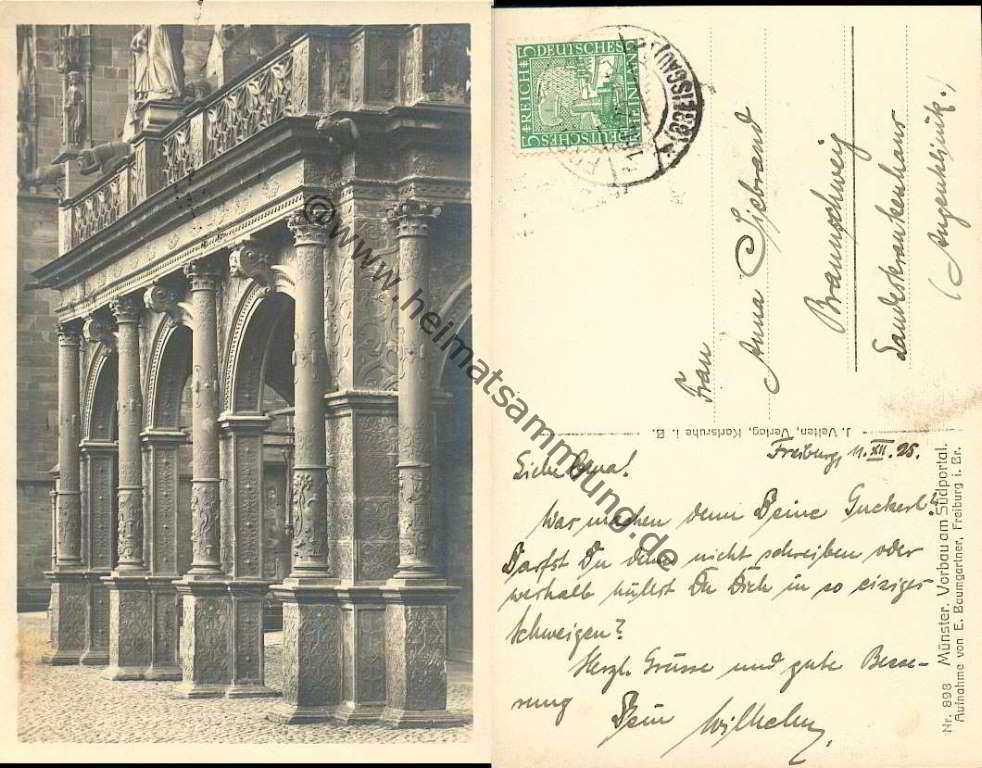 DEUTSCHES
REICH
RHEINLAND
DEUTSCHES
5 5
(BREISGAU)
Frau
Anna Isebrand
Braunschweig
Landeskrankenhaus
(Augenklinik.)
J. Velten, Verlag, Karlsruhe i. B.
Nr. 898 Münster. Vorbau am Südportal.
Aufnahme von E. Baumgartner, Freiburg i. Br.
Freiburg, 11. XII. 25.
Liebe Oma!
Was machen denn Deine Guckerl?
Darfst Du denn nicht schreiben oder
weshalb hüllst Du Dich in so eisiges
Schweigen?
Herzl. Grüsse und gute Besse-
rung
Dein Wilhelm.
@www.heimatsammlung.de@